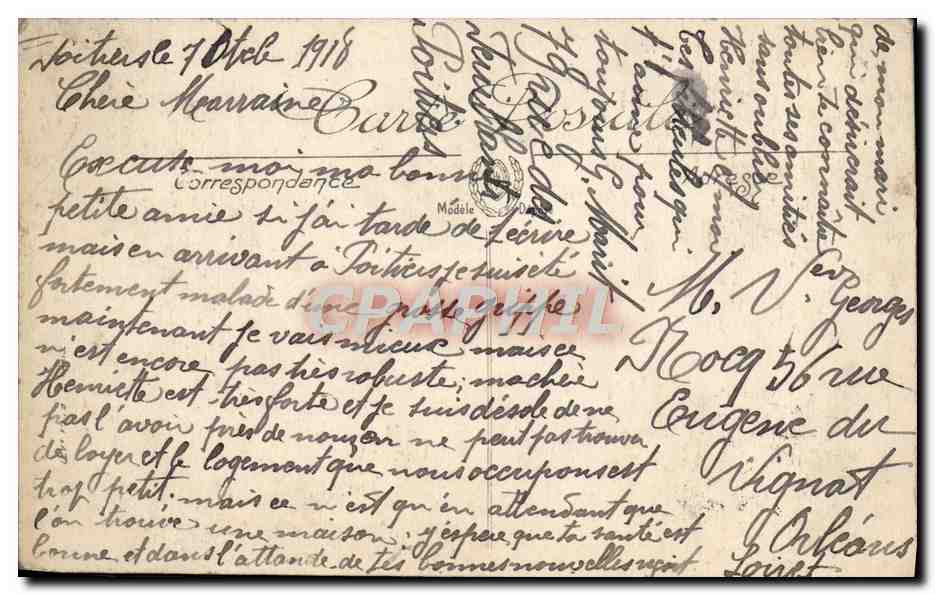 Poitiers le 7 Octobe 1918
Chère Marraine
Carte Postale
Excuse moi ma bonne
Correspondance
Adresse
petite amie si j'ai tardé de t'écrire
Modèle Déposé
mais en arrivant a Poitiers je suis été
fortement malade d'une grosse grippe
maintenant je vais mieux mais ce
n'est encore pas très robuste, ma chère
Henriette est très forte et je suis désolé de ne
pas l'avoir près de nous, on ne peut pas trouver
de loyer et le logement que nous occupons est
trop petit. mais ce n'est qu'en attendant que
l'on trouve une maison. j'espère que ta santé est
bonne et dans l'attande de tes bonnes nouvelles reçoit
M. Vev Georges
Nocq 56 rue
Eugène du
Vignat
Orléans
Loiret
de mon mari
qui désirerait
bien te connaître
toutes ses amitiés
sans oublier
Henriette et moi
tes filleules qui
t'aime pour
toujours G. Marit
78 rue du
Poitiers
CPAPHIL